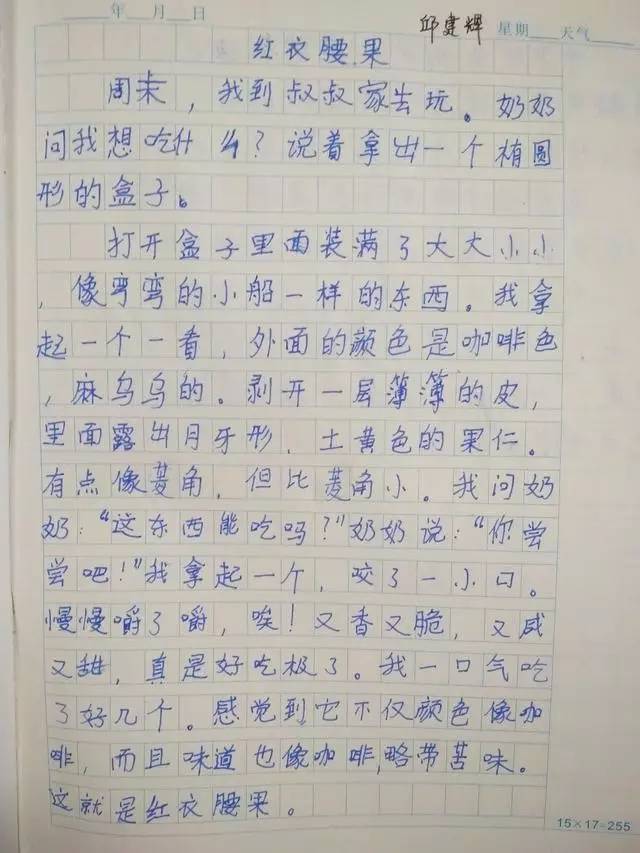 年 月 日 邱建辉 星期 天气
红衣腰果
周末，我到叔叔家去玩。奶奶
问我想吃什么？说着拿出一个椭圆
形的盒子。
打开盒子里面装满了大大小小
，像弯弯的小船一样的东西。我拿
起一个一看，外面的颜色是咖啡色
，麻乌乌的。剥开一层簿簿的皮，
里面露出月牙形、土黄色的果仁。
有点像菱角，但比菱角小。我问奶
奶：“这东西能吃吗？”奶奶说：“你尝
尝吧！”我拿起一个，咬了一小口。
慢慢嚼了嚼，唉！又香又脆，又咸
又甜，真是好吃极了。我一口气吃
了好几个。感觉到它不仅颜色像咖
啡，而且味道也像咖啡，略带苦味。
这就是红衣腰果。
15×17=255